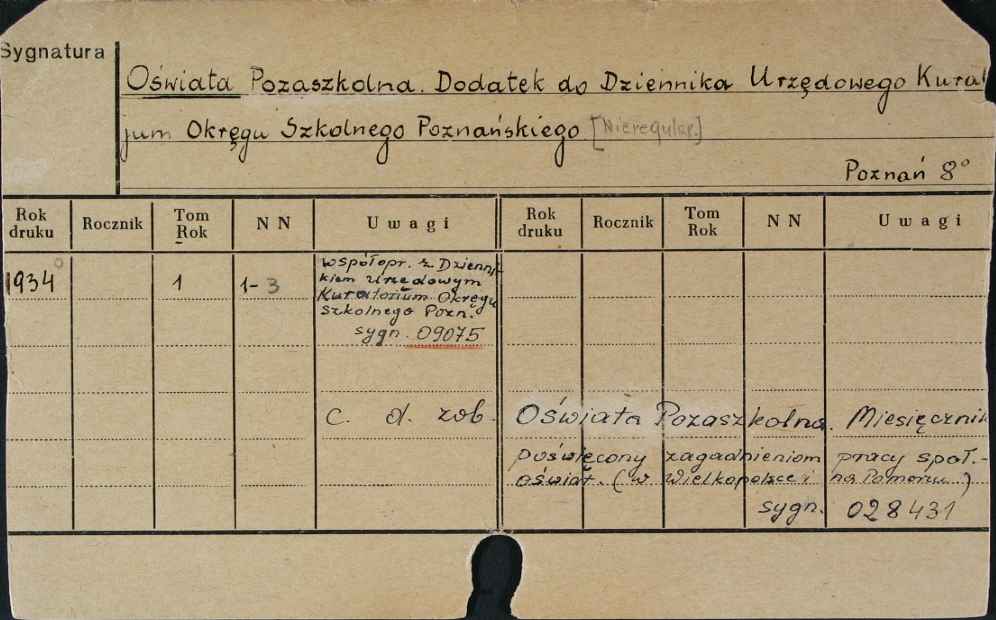 Sygnatura
Oświata Pozaszkolna. Dodatek do Dziennika Urzędowego Kurat
jum Okręgu Szkolnego Poznańskiego [Nieregular.]
Poznań 8°
Rok druku Rocznik Tom Rok NN Uwagi Rok druku Rocznik Tom Rok NN Uwagi
1934 1 1-3
współopr. z Dzienni-
kiem Urzędowym
Kuratorium Okręgu
Szkolnego Pozn.
sygn. 09075
c. d. zob. Oświata Pozaszkolna. Miesięcznik
poświęcony zagadnieniom pracy społ.-
oświat. (w Wielkopolsce i na Pomorzu...)
sygn. 028431